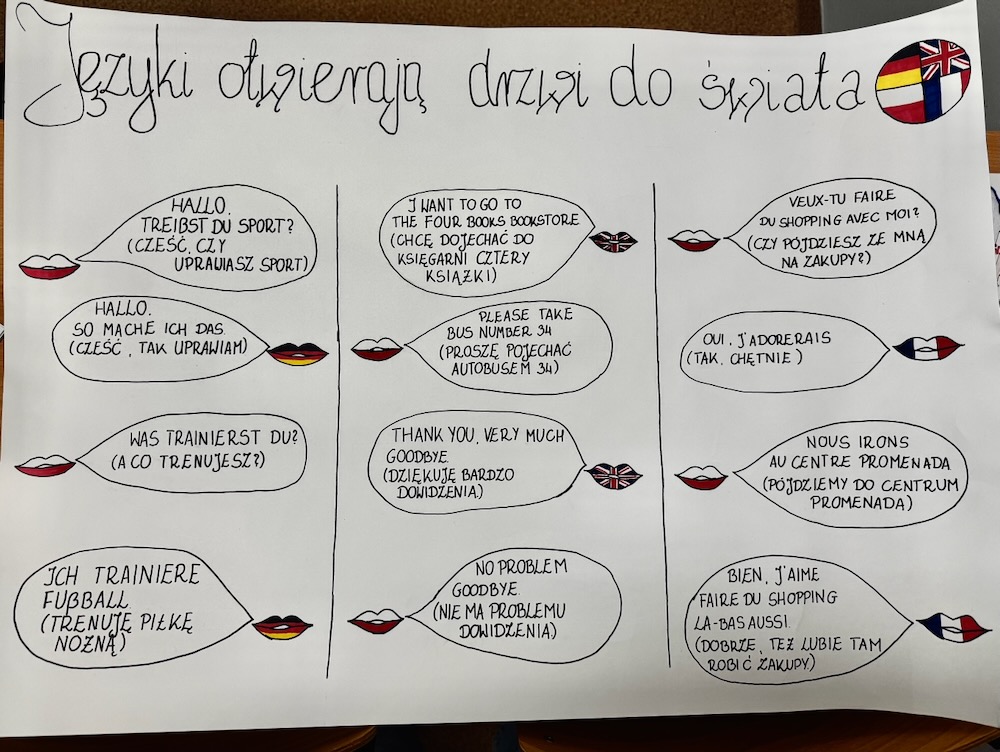 Języki otwierają drzwi do świata
HALLO.
TREIBST DU SPORT?
(CZEŚĆ, CZY
UPRAWIASZ SPORT)
HALLO.
SO MACHE ICH DAS.
(CZEŚĆ, TAK UPRAWIAM)
WAS TRAINIERST DU?
(A CO TRENUJESZ?)
ICH TRAINIERE
FUßBALL
(TRENUJĘ PIŁKĘ
NOŻNĄ)
I WANT TO GO TO
THE FOUR BOOKS BOOKSTORE
(CHCĘ DOJECHAĆ DO
KSIĘGARNI CZTERY
KSIĄŻKI)
PLEASE TAKE
BUS NUMBER 34
(PROSZĘ POJECHAĆ
AUTOBUSEM 34)
THANK YOU, VERY MUCH
GOODBYE.
(DZIĘKUJĘ BARDZO
DOWIDZENIA)
NO PROBLEM
GOODBYE.
(NIE MA PROBLEMU
DOWIDZENIA)
VEUX-TU FAIRE
DU SHOPPING AVEC MOI?
(CZY PÓJDZIESZ ZE MNĄ
NA ZAKUPY?)
OUI, J'ADORERAIS
(TAK, CHĘTNIE)
NOUS IRONS
AU CENTRE PROMENADA
(PÓJDZIEMY DO CENTRUM
PROMENADA)
BIEN, J'AIME
FAIRE DU SHOPPING
LA-BAS AUSSI.
(DOBRZE, TEŻ LUBIE TAM
ROBIĆ ZAKUPY)